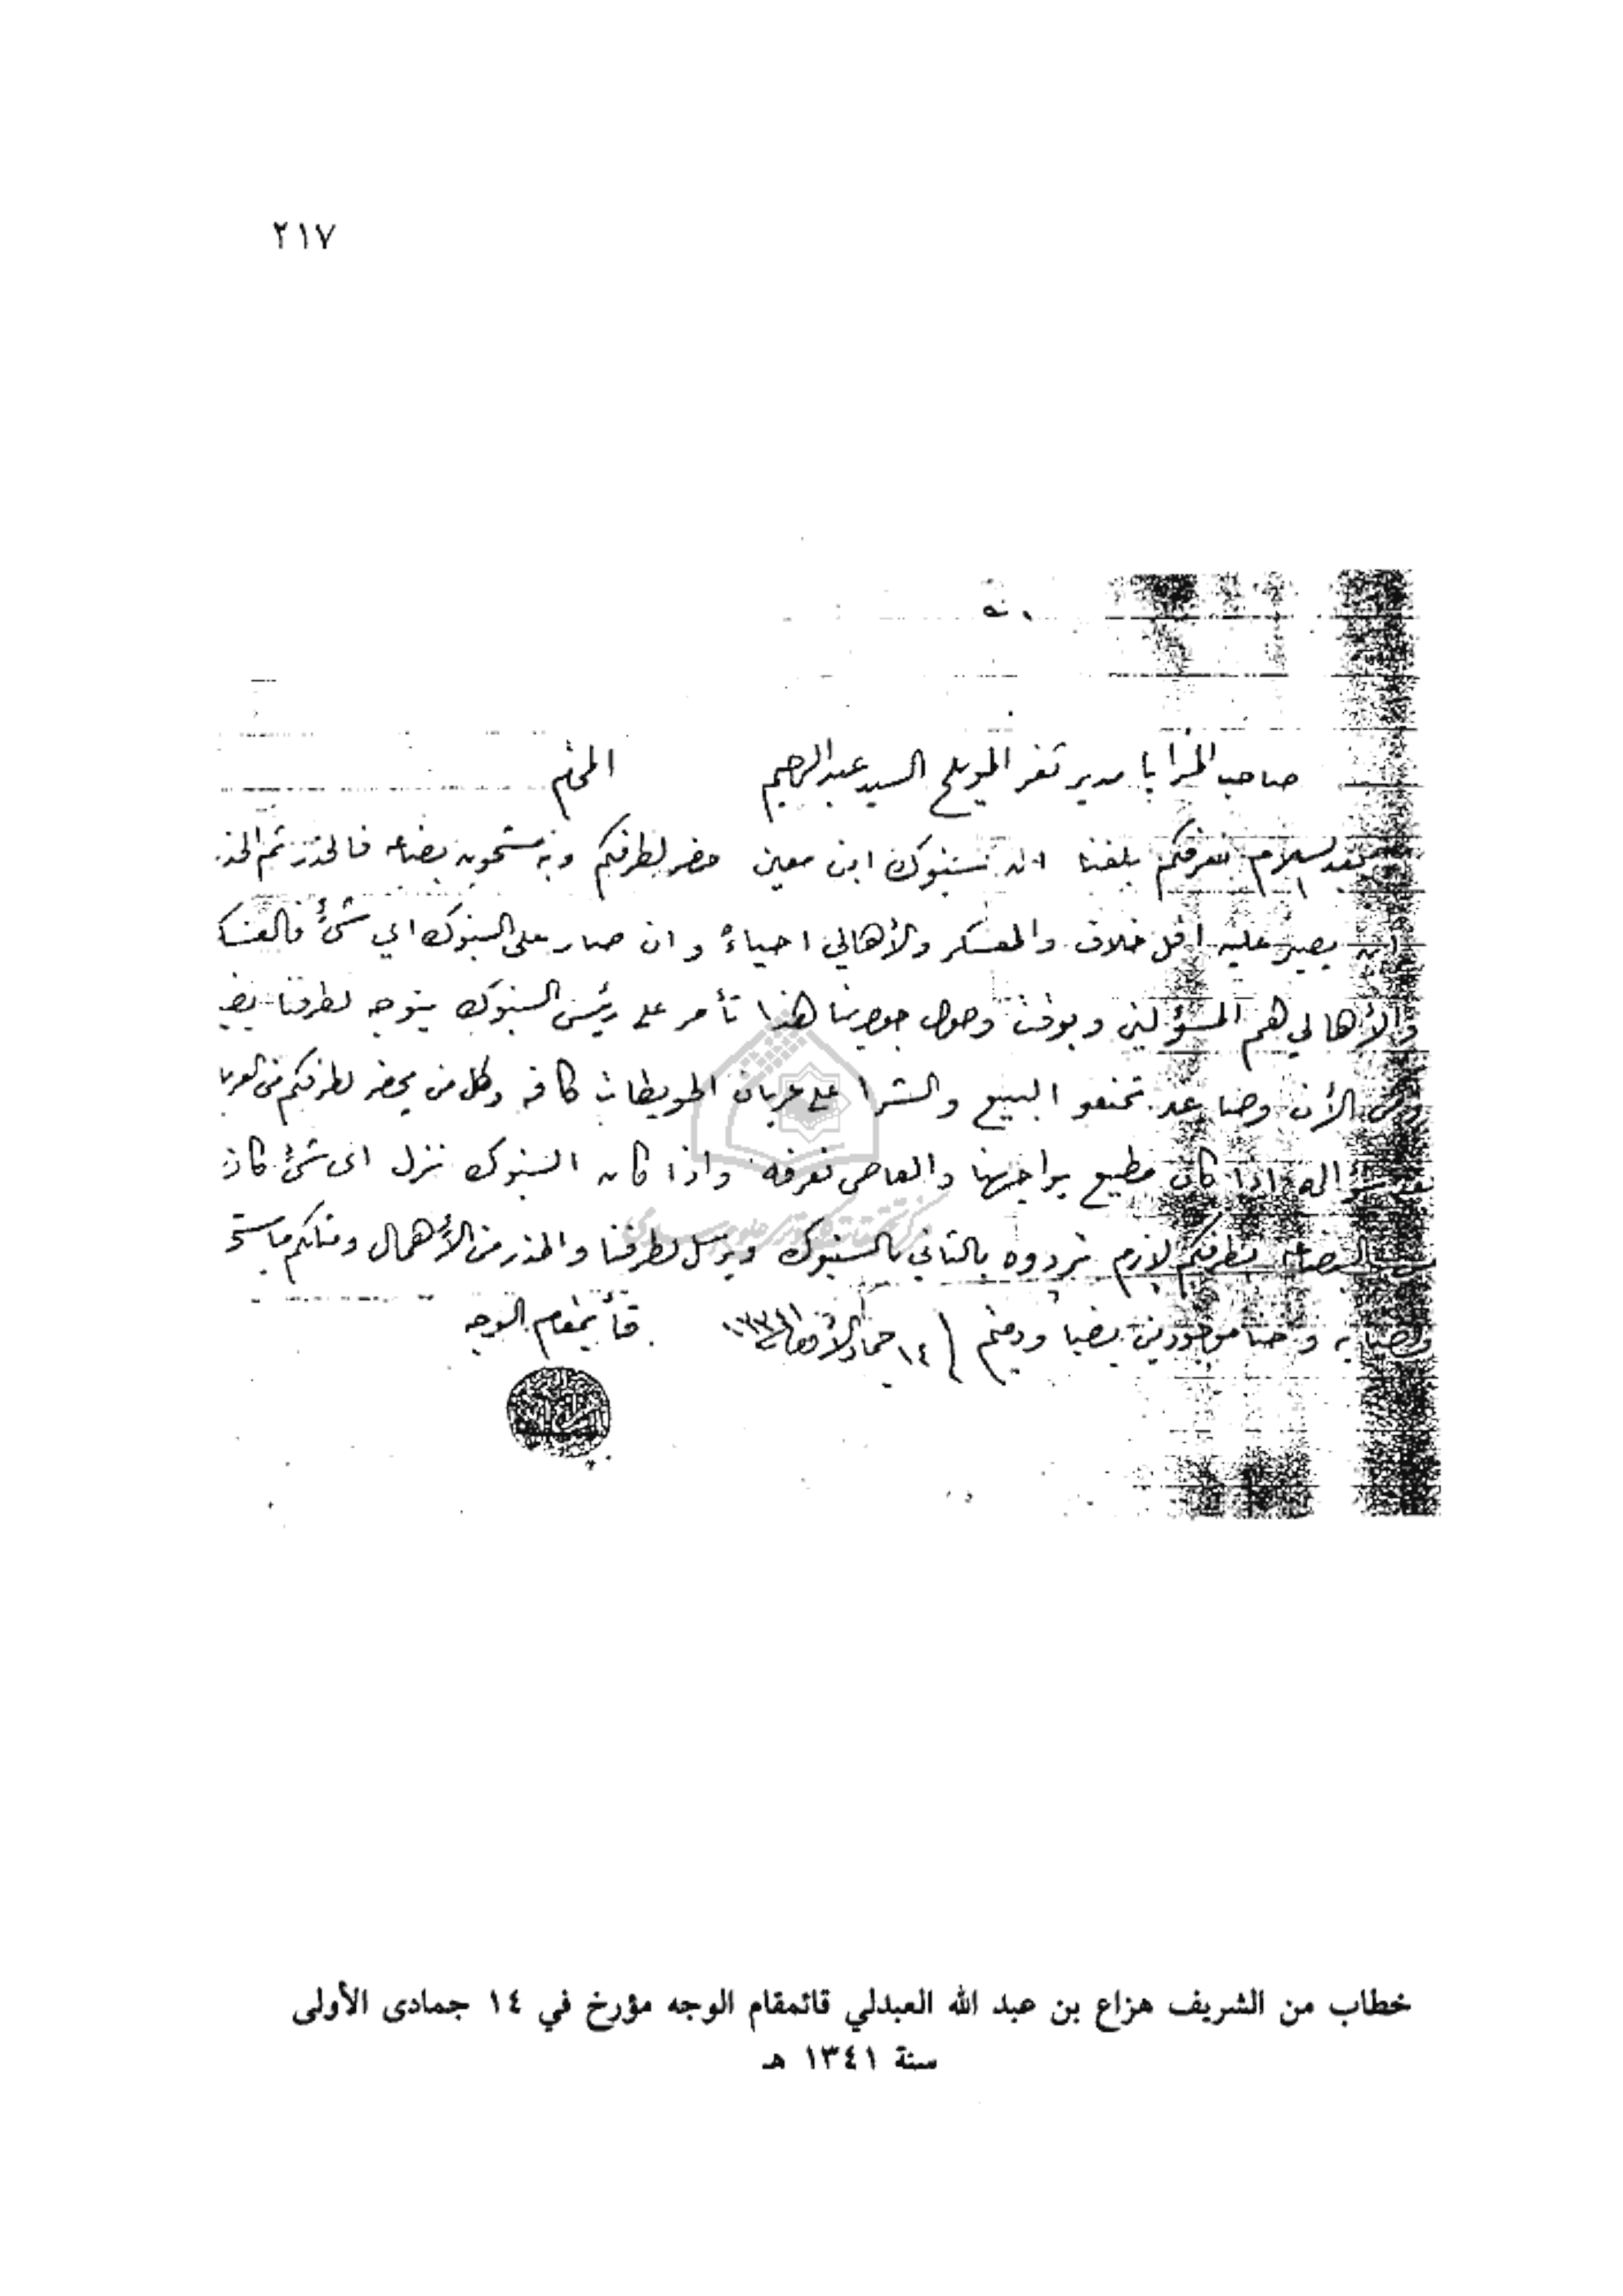 ٢١٧
صاحب المزايا مدير ثغر المويلح السيد عبدالرحيم المحترم
بعد السلام نعرفكم بلغنا ان سنبوك ابن معين حضر لطرفكم وبه مشحون بضاعه فالحذر ثم الحذر
ان يصير عليه اقل خلاف والعسكر والأهالي احياءً وان صار على السنبوك اي شئ فالعسكر
والأهالي هم المسؤلين وبوقت وصول جوابنا هذا تأمر على رئيس السنبوك يتوجه لطرفنا بضبا
ومن الأن وصاعد تمنعو البيع والشرا على عربان الحويطات كافه وكل من يحضر لطرفكم من العربا
اذا كان مطيع يواجهنا والعاصي نعرفه واذا كان السنبوك نزل اي شئ كان
من البضاعه بطرفكم لازم تردوه بالثاني بالسنبوك ويرسل لطرفنا والحذر من الأهمال ومثلكم ما يستحق
وصايه وحنا موجودين بضبا ودمتم ١٤ جماد الأول ١٣٤١ قائمقام الوجه
خطاب من الشريف هزاع بن عبد الله العبدلي قائمقام الوجه مؤرخ في ١٤ جمادى الأولى
سنة ١٣٤١ هـ